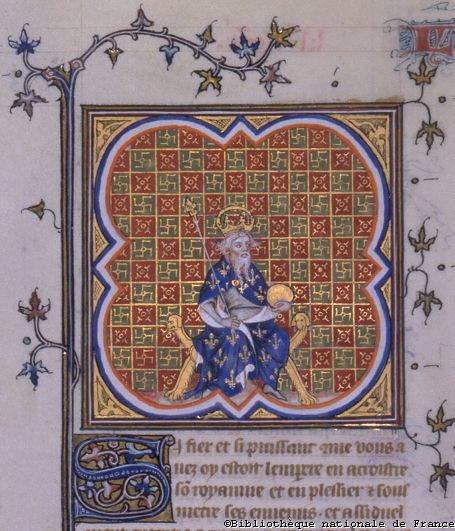 Si fier et si puissant 9me vous a
uez oy estoit lempere en acroistre
sõ royaume et en plessier ⁊ sous
metre ses ennemis. et assiduel
©Bibliothèque nationale de France